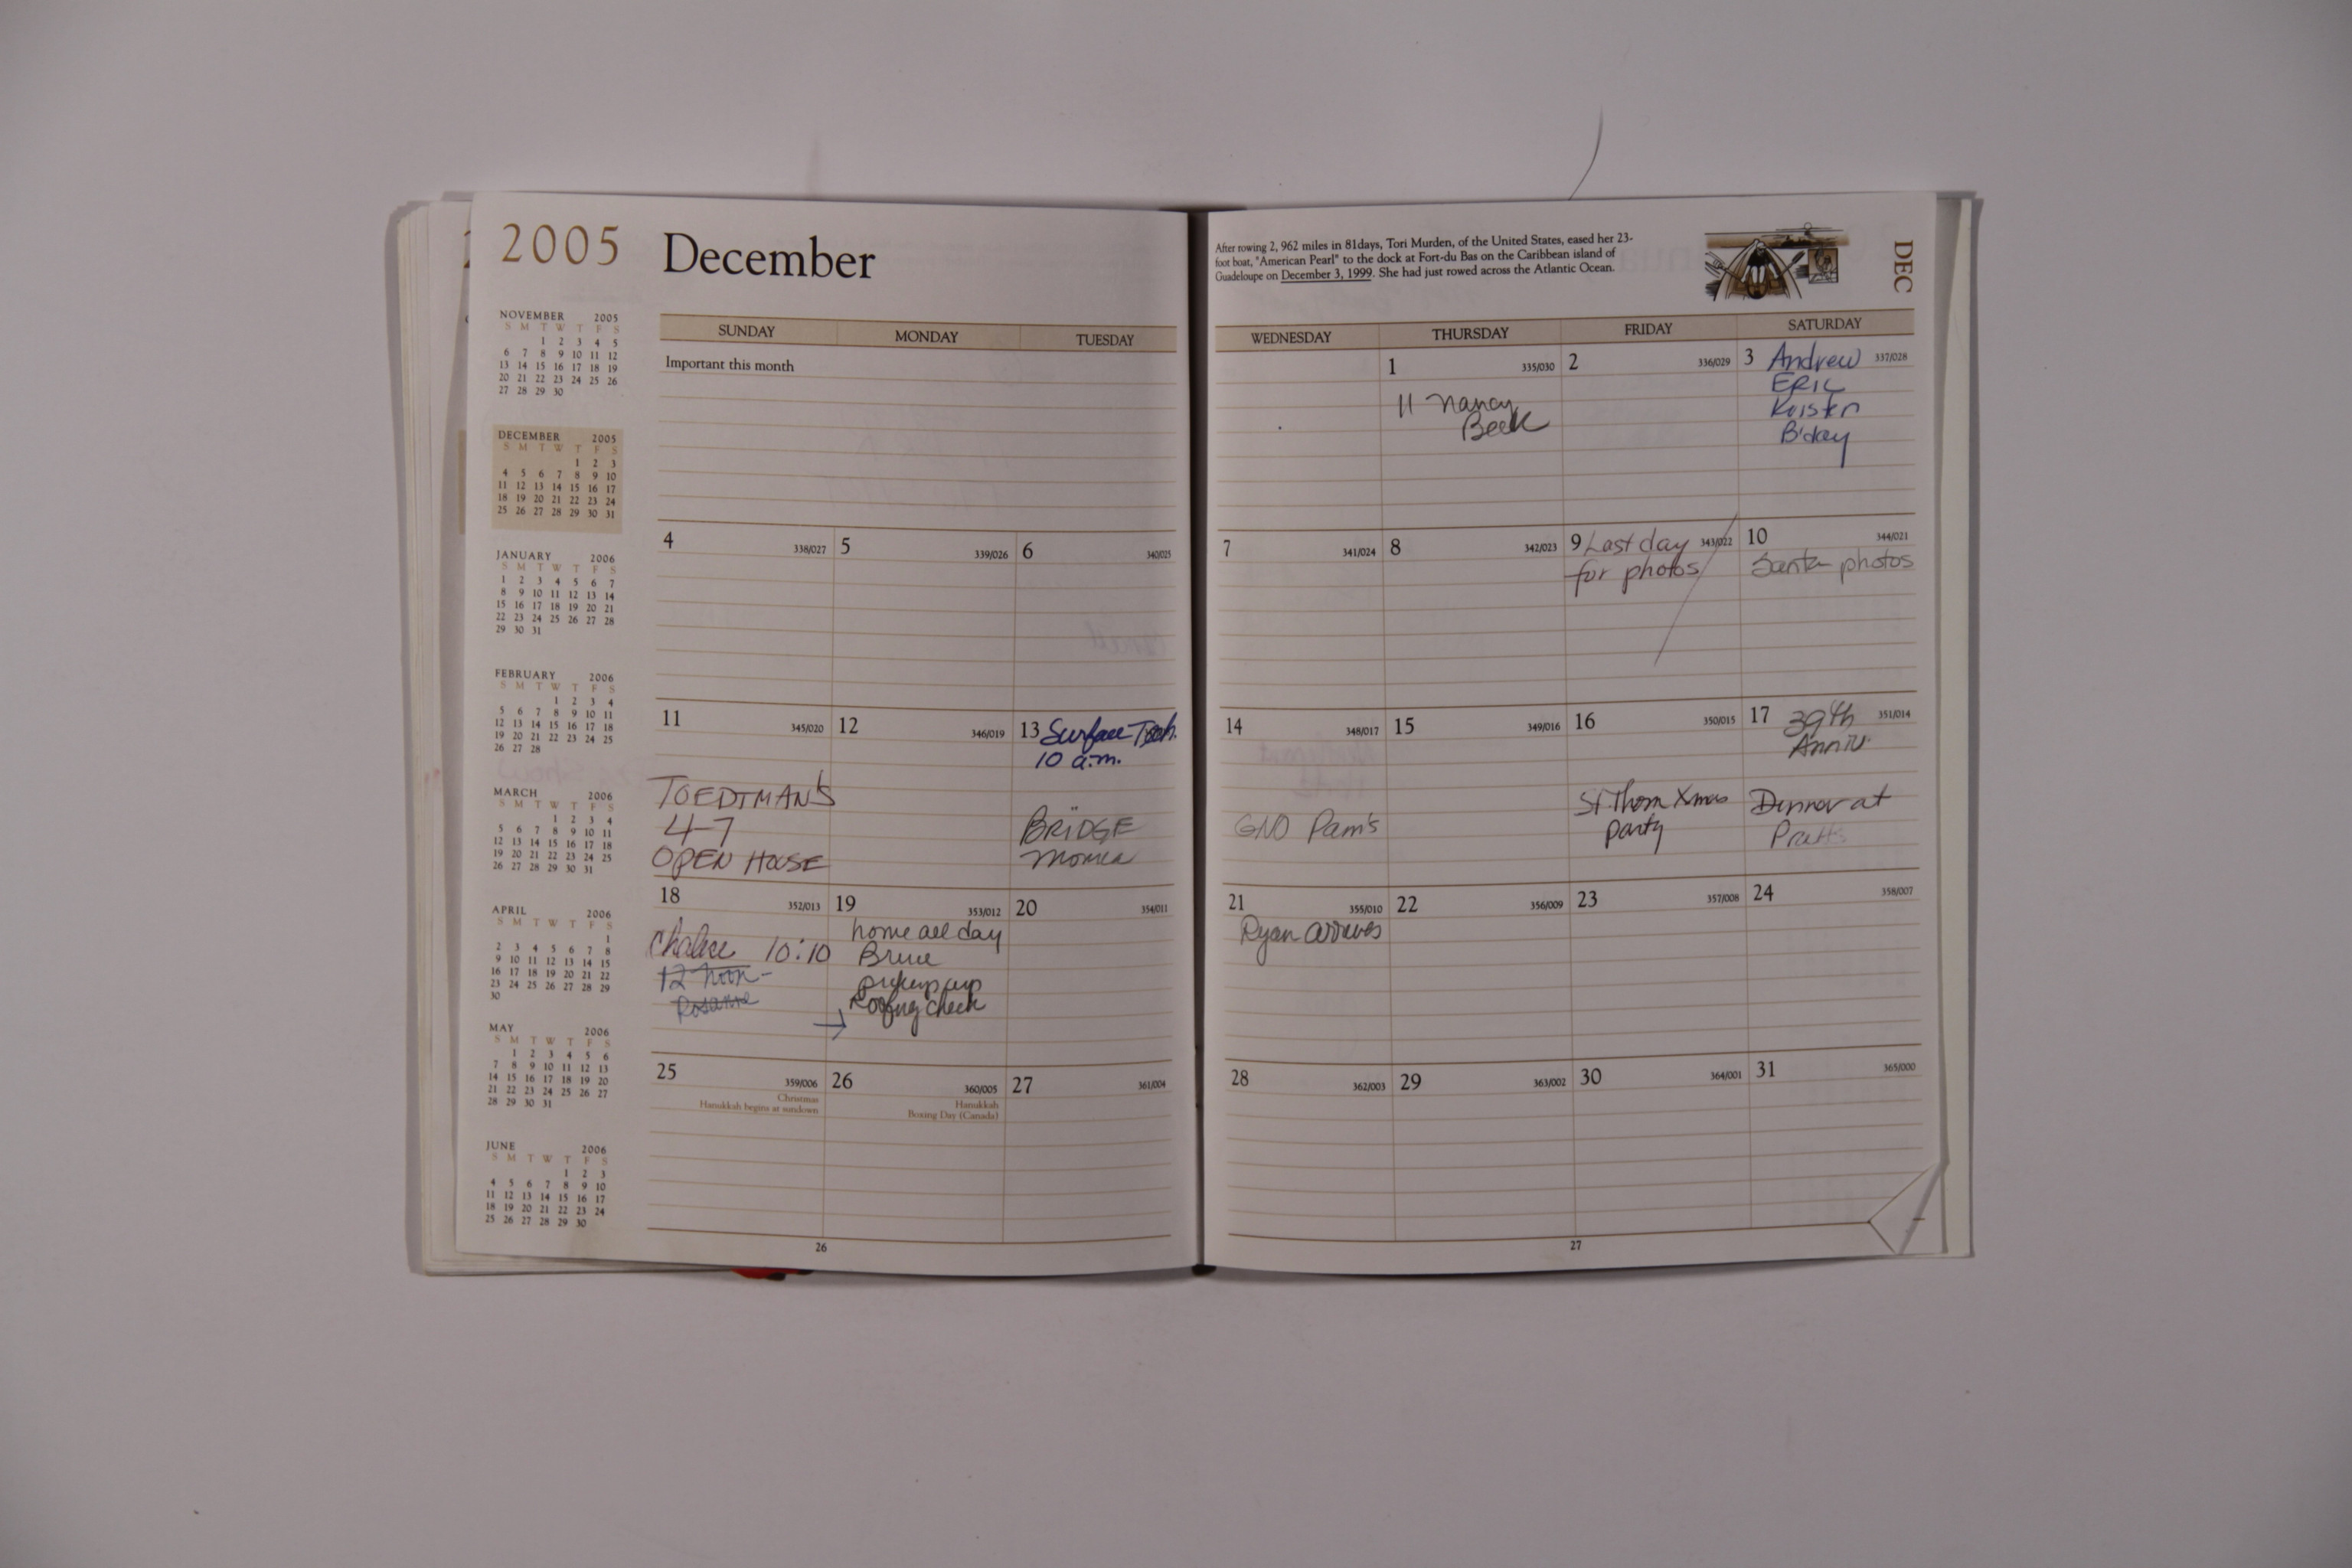 2005
December
NOVEMBER 2005
S M T W T F S
1 2 3 4 5
6 7 8 9 10 11 12
13 14 15 16 17 18 19
20 21 22 23 24 25 26
27 28 29 30
DECEMBER 2005
S M T W T F S
1 2 3
4 5 6 7 8 9 10
11 12 13 14 15 16 17
18 19 20 21 22 23 24
25 26 27 28 29 30 31
JANUARY 2006
S M T W T F S
1 2 3 4 5 6 7
8 9 10 11 12 13 14
15 16 17 18 19 20 21
22 23 24 25 26 27 28
29 30 31
FEBRUARY 2006
S M T W T F S
1 2 3 4
5 6 7 8 9 10 11
12 13 14 15 16 17 18
19 20 21 22 23 24 25
26 27 28
MARCH 2006
S M T W T F S
1 2 3 4
5 6 7 8 9 10 11
12 13 14 15 16 17 18
19 20 21 22 23 24 25
26 27 28 29 30 31
APRIL 2006
S M T W T F S
1
2 3 4 5 6 7 8
9 10 11 12 13 14 15
16 17 18 19 20 21 22
23 24 25 26 27 28 29
30
MAY 2006
S M T W T F S
1 2 3 4 5 6
7 8 9 10 11 12 13
14 15 16 17 18 19 20
21 22 23 24 25 26 27
28 29 30 31
JUNE 2006
S M T W T F S
1 2 3
4 5 6 7 8 9 10
11 12 13 14 15 16 17
18 19 20 21 22 23 24
25 26 27 28 29 30
SUNDAY MONDAY TUESDAY
Important this month
4 338/027 5 339/026 6 340/025
11 345/020
TOEDTMAN'S
4-7
OPEN HOUSE
12 346/019
13 Surface Tech.
10 a.m.
BRIDGE
18 352/013
Chalice 10:10
12 noon-
19 353/012
home all day
Bruce
pickup up
Roofing check
20 354/011
25 359/006
Christmas
Hanukkah begins at sundown
26 360/005
Hanukkah
Boxing Day (Canada)
27 361/004
26
After rowing 2, 962 miles in 81days, Tori Murden, of the United States, eased her 23-
foot boat, "American Pearl" to the dock at Fort-du Bas on the Caribbean island of
Guadeloupe on December 3, 1999. She had just rowed across the Atlantic Ocean.
DEC
WEDNESDAY THURSDAY FRIDAY SATURDAY
1 335/030
11 Nancy
Beek
2 336/029
3 Andrew 337/028
ERIC
Kristen
B'day
7 341/024 8 342/023
9 Last day 343/022
for photos
10 344/021
Santa photos
14 348/017
GNO Pam's
15 349/016
16 350/015
St Thom Xmas
party
17 39th 351/014
Anniv.
Dinner at
Pratts
21 355/010
Ryan arrives
22 356/009 23 357/008 24 358/007
28 362/003 29 363/002 30 364/001 31 365/000
27